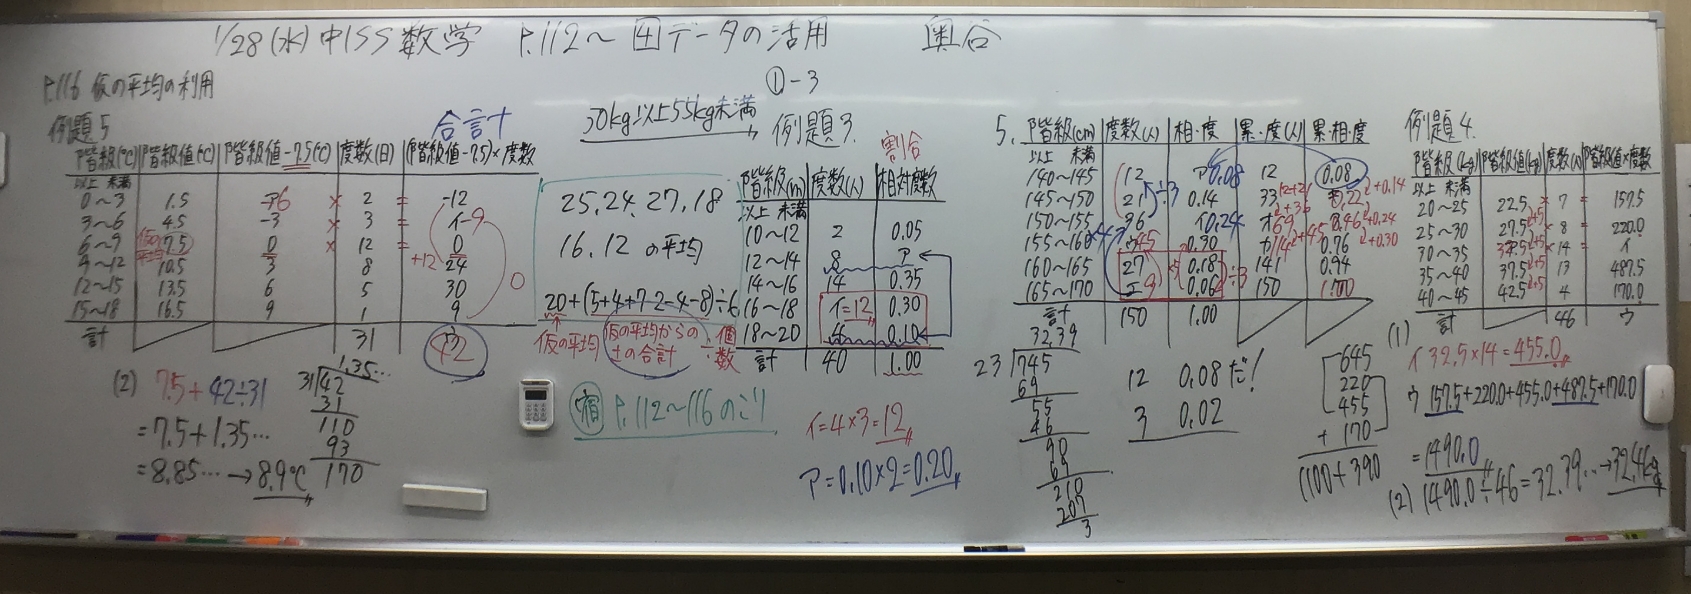 1/28(水) 中1SS 数学 P.112〜 4 データの活用 奥谷
P.116 仮の平均の利用
例題5
合計+
階級(℃) 階級値(℃) 階級値-7.5(℃) 度数(日) (階級値-7.5)×度数
以上 未満
0〜3 1.5 -6 × 2 = -12
3〜6 4.5 -3 × 3 = イ-9
6〜9 7.5 0 × 12 = 0
仮の平均
9〜12 10.5 3 8 +12 24
12〜15 13.5 6 5 30
15〜18 16.5 9 1 9
0
計 31 42
(2) 7.5+42÷31
=7.5+1.35…
=8.85…→8.9℃
1.35…
31 42
31
110
93
170
①-3
50kg以上55kg未満
25, 24, 27, 18
16, 12 の平均
20+(5+4+7-2-4-8)÷6
仮の平均 仮の平均からの±の合計 ÷個数
宿 P.112〜116のこり
例題3.
割合
階級(m) 度数(人) 相対度数
以上 未満
10〜12 2 0.05
12〜14 8 ア
14〜16 14 0.35
16〜18 イ=12 0.30
18〜20 4 0.10
計 40 1.00
イ=4×3=12
ア=0.10×2=0.20
5. 階級(cm) 度数(人) 相・度 累・度(人) 累・相・度
以上 未満
140〜145 12 ア0.08 12 0.08
145〜150 21 0.14 33 0.22 +0.14
150〜155 36 イ0.24 オ69 0.46 +0.24
155〜160 ウ45 0.30 カ114 0.76 +0.30
160〜165 27 0.18 141 0.94
165〜170 エ9 0.06 150 1.00
計 150 1.00
32.39
23 745
69
55
46
90
69
210
207
3
12 0.08だ!
3 0.02
645
220
455
+170
1100+390
例題4.
階級(kg) 階級値(kg) 度数(人) 階級値×度数
以上 未満
20〜25 22.5 × 7 = 157.5
25〜30 27.5 × 8 = 220.0
30〜35 32.5 × 14 = イ
35〜40 37.5 13 487.5
40〜45 42.5 4 170.0
計 46 ウ
(1)
イ 32.5×14=455.0
ウ 157.5+220.0+455.0+487.5+170.0
=1490.0
(2) 1490.0÷46=32.39…→32.4kg